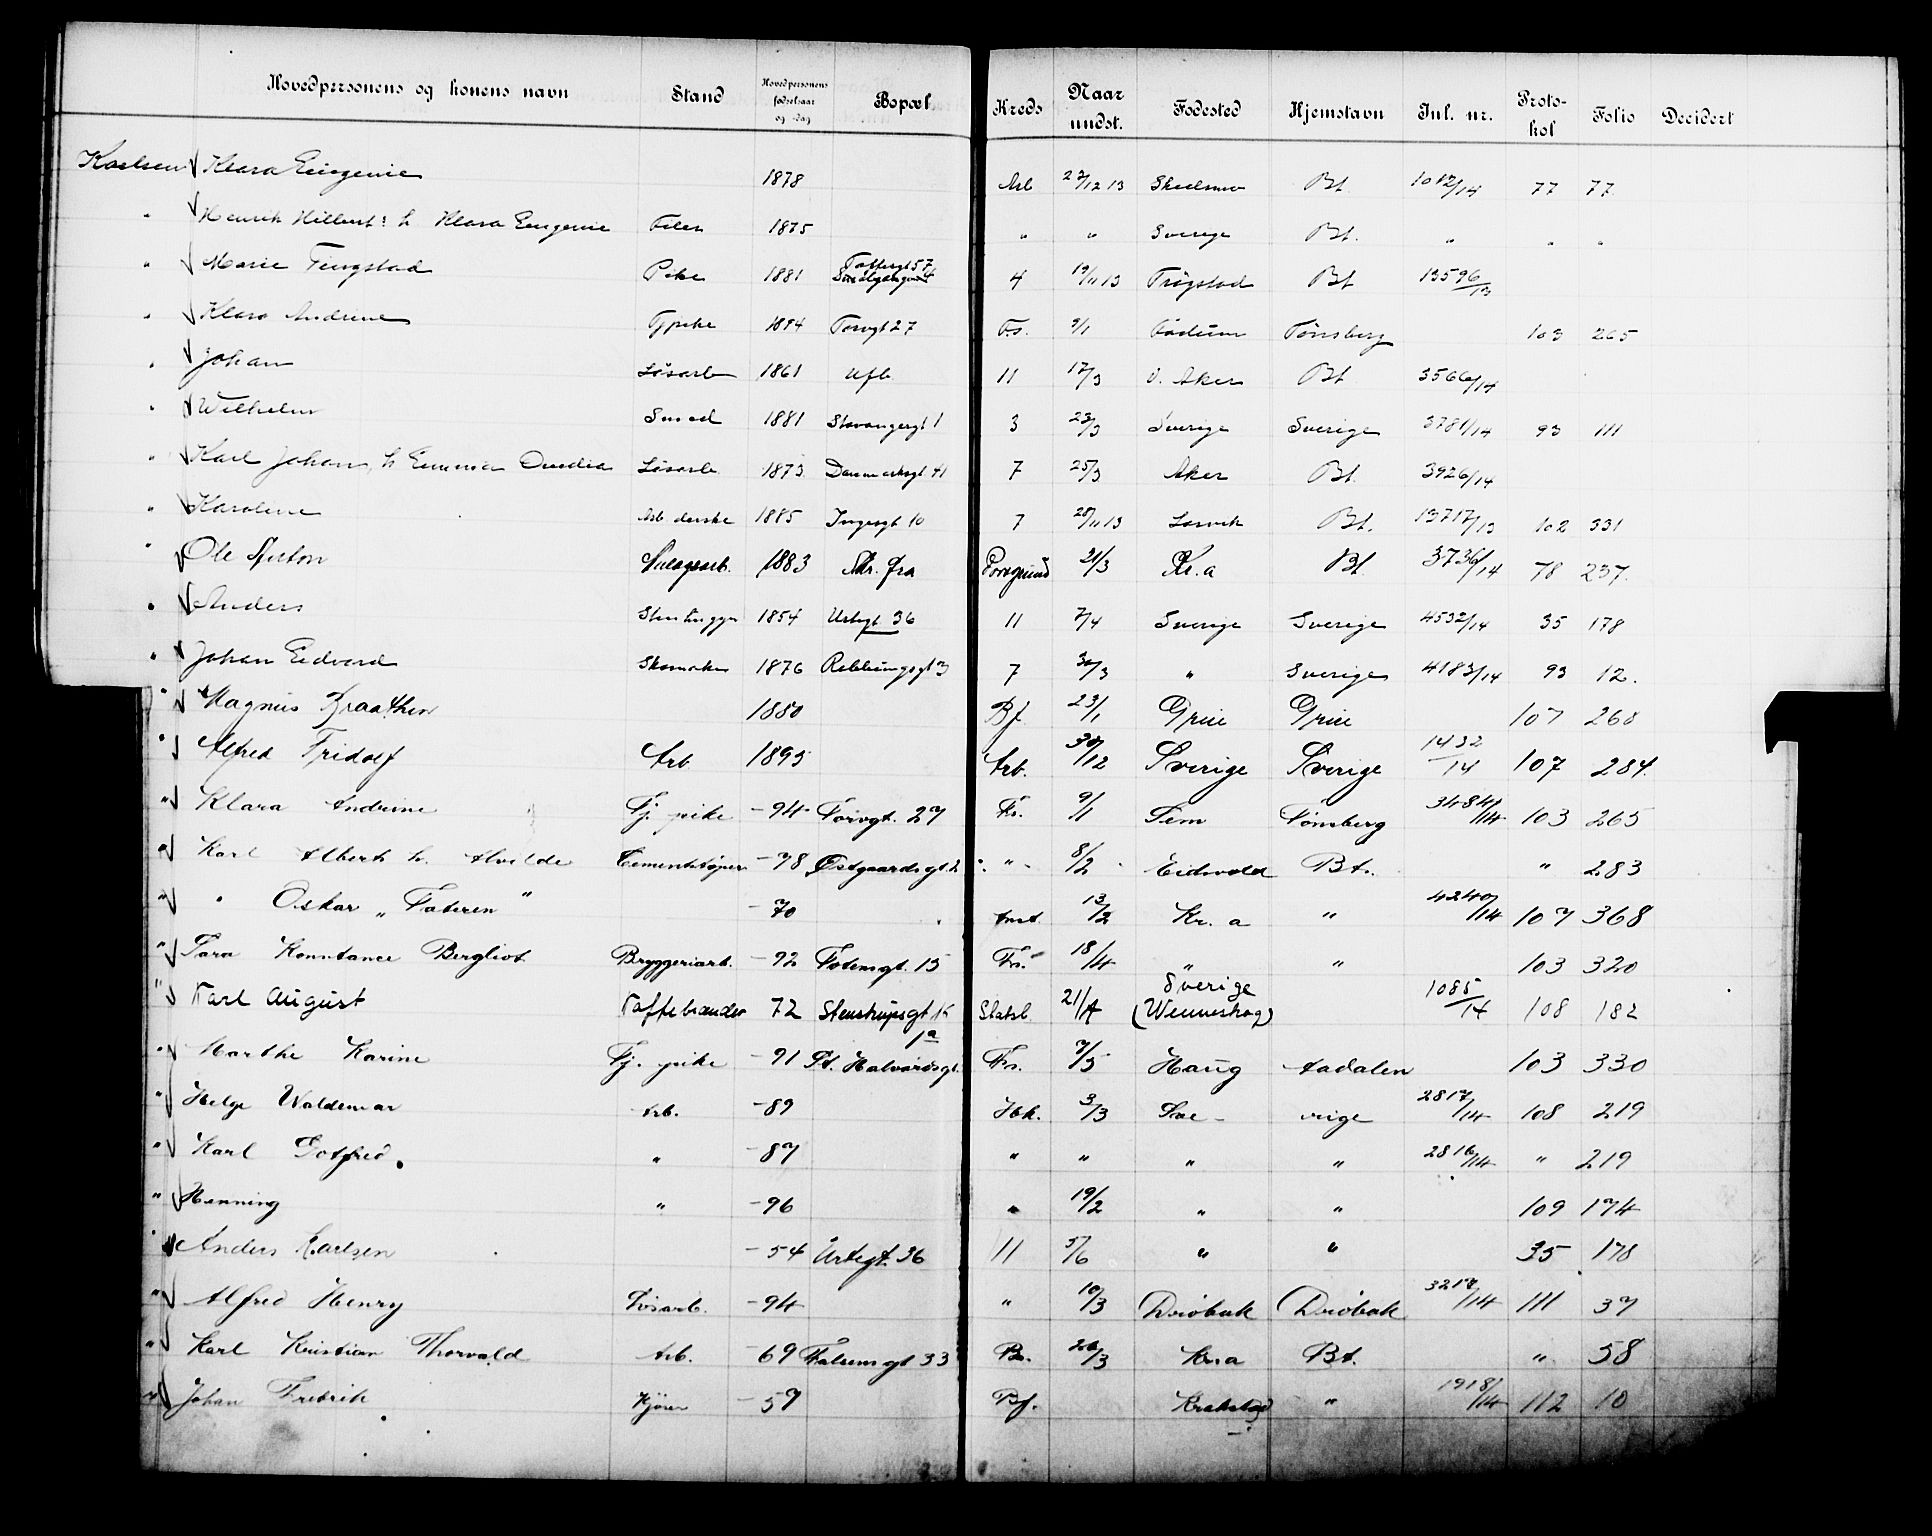 Hovedpersonens og konens navn Stand Hovedpersonens fødselsaar og -dag Bopæl Kreds Naar undst. Fødested Hjemstavn Jnl. nr. Protokol Folio Decidert
Karlsen Klara Eugenie 1878 Arb 27/12 13 Bt. 1012/14 77 77
" Henrik Hilbert: h Klara Eugenie Filer 1875 " " Sverige Bt. " " "
" Marie Tingstad Pike 1881 Toftesgt 57 4 19/11 13 Trøgstad Bt 13596/13
" Klara Andrine Tjpike 1894 Torvgt 27 Fs. 9/1 Tønsberg 103 265
" Johan Løsarb 1861 Ufb 11 17/3 V. Aker Bt 3566/14
" Wilhelm Smed 1881 Stavangergt 1 3 23/3 Sverige Sverige 3781/14 93 111
" Karl Johan, h Emma Ovidia Løsarb 1873 Danmarksgt 41 7 25/3 Aker Bt. 3926/14
" Karoline Arb.derske 1885 Ingesgt 10 7 28/11 13 Larvik Bt. 13717/13 102 331
" Ole 1883 Mr. fra Porsgrund 21/3 Kr.a Bt 3736/14 78 237.
" Anders Stenhugger 1854 Urtegt 36 11 7/4 Sverige Sverige 4532/14 35 178
" Johan Edvard Skomaker 1876 Rublinugsgt 3 7 30/3 " Sverige 4183/14 93 12.
" Magnus Braathen 1880 Bf. 23/1 Grue Grue 107 268
" Alfred Fridolf Arb 1895 Arb. 30/12 Sverige Sverige 1432/14 107 284.
" Klara Andrine Tj. pike - 94 Torvgt. 27 Fs. 9/1 Sem Tønsberg 3484/14 103 265
" Karl Albert h. Alvilde Cementstøper - 78 Østgaardsgt. 2 " 8/2 Eidsvold Bt. " 283
" " Oskar „ Fateren " - 70 Anst. 13/2 Kr.a " 4240/14 107 368
" Tora Konstance Bergliot Bryggeriarb. - 92 Totensgt. 15 Fs. 18/4 " " 103 320
" Karl August Kaffebrænder 72 Stenstrupsgt 15 Statsb. 21/4 Sverige (Wenneskog) 1085/14 108 182
" Marthe Karine Tj. pike - 91 St. Halvardsgt. 1a Fs. 7/5 Haug Aadalen 103 330
" Helge Waldemar Arb. - 89 Hbk. 3/3 Sve- rige 2817/14 108 219
" Karl Gotfred. " - 87 " " " " 2816/14 " 219
" Henning " - 96 " 19/2 " " 109 174
" Anders Karlsen - 54 Urtegt. 36 11 5/6 " " 35 178
" Alfred Henry Løsarb. - 94 " 10/3 Drøbak Drøbak 3217/14 111 37
" Karl Kristian Thorvald Arb. - 69 Falsensgt 33 Bs. 26/3 Kr.a Bt. " 58
" Johan Fredrik Kjører - 57 Bf. Krakstad " 1918/14 112 10